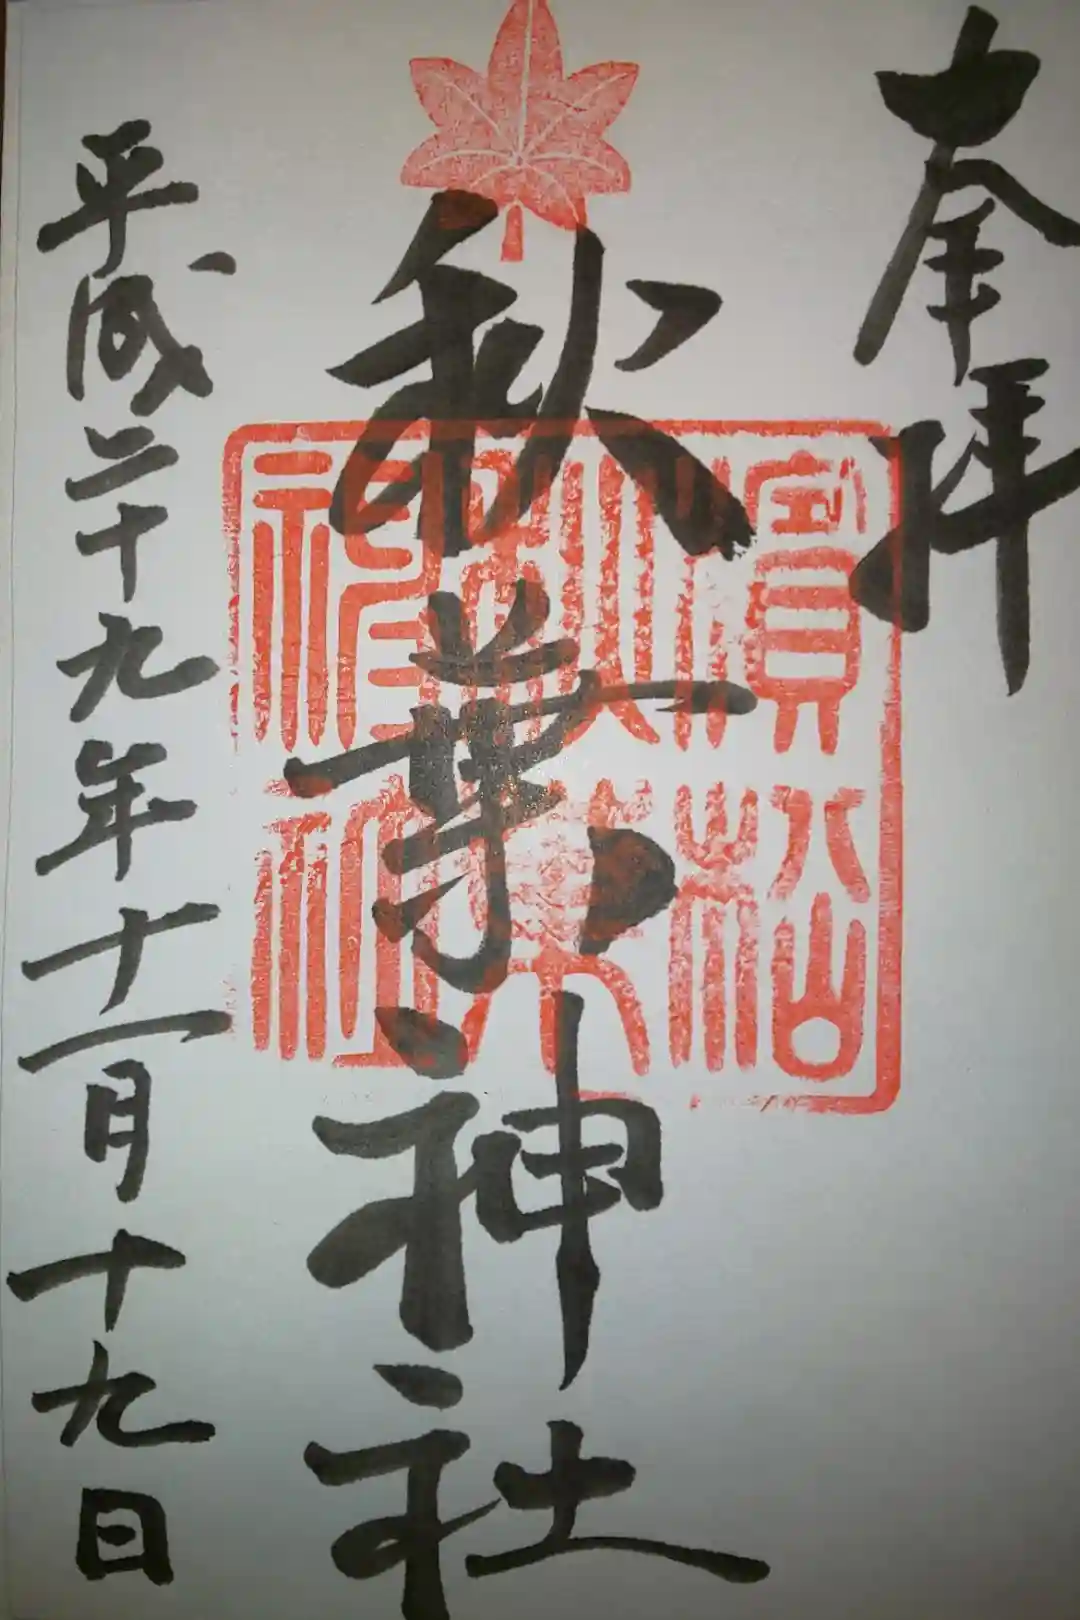 奉拝
秋葉神社
濱松
秋葉
神社
平成二十九年十一月十九日